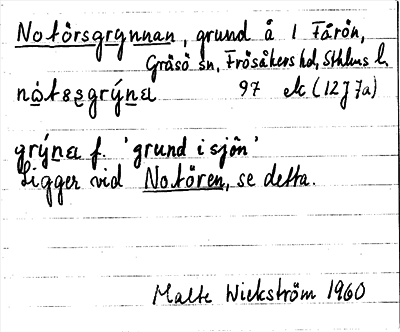 Notörsgrynnan, grund å 1 Fårön,
Gräsö sn, Frösåkers hd, Sthlms l.
nὼtꞩsgrýna 97 ek (12J7a)
grýna f. 'grund i sjön'
Ligger vid Notören, se detta.
Malte Wickström 1960